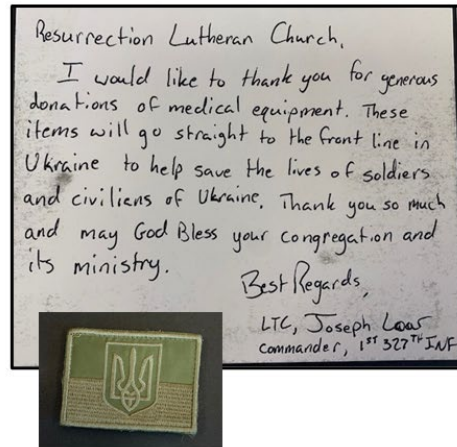 Resurrection Lutheran Church,
I would like to thank you for generous
donations of medical equipment. These
items will go straight to the front line in
Ukraine to help save the lives of soldiers
and civiliens of Ukraine. Thank you so much
and may God Bless your congregation and
its ministry.
Best Regards,
LTC, Joseph
Commander, 1ST 327TH INF